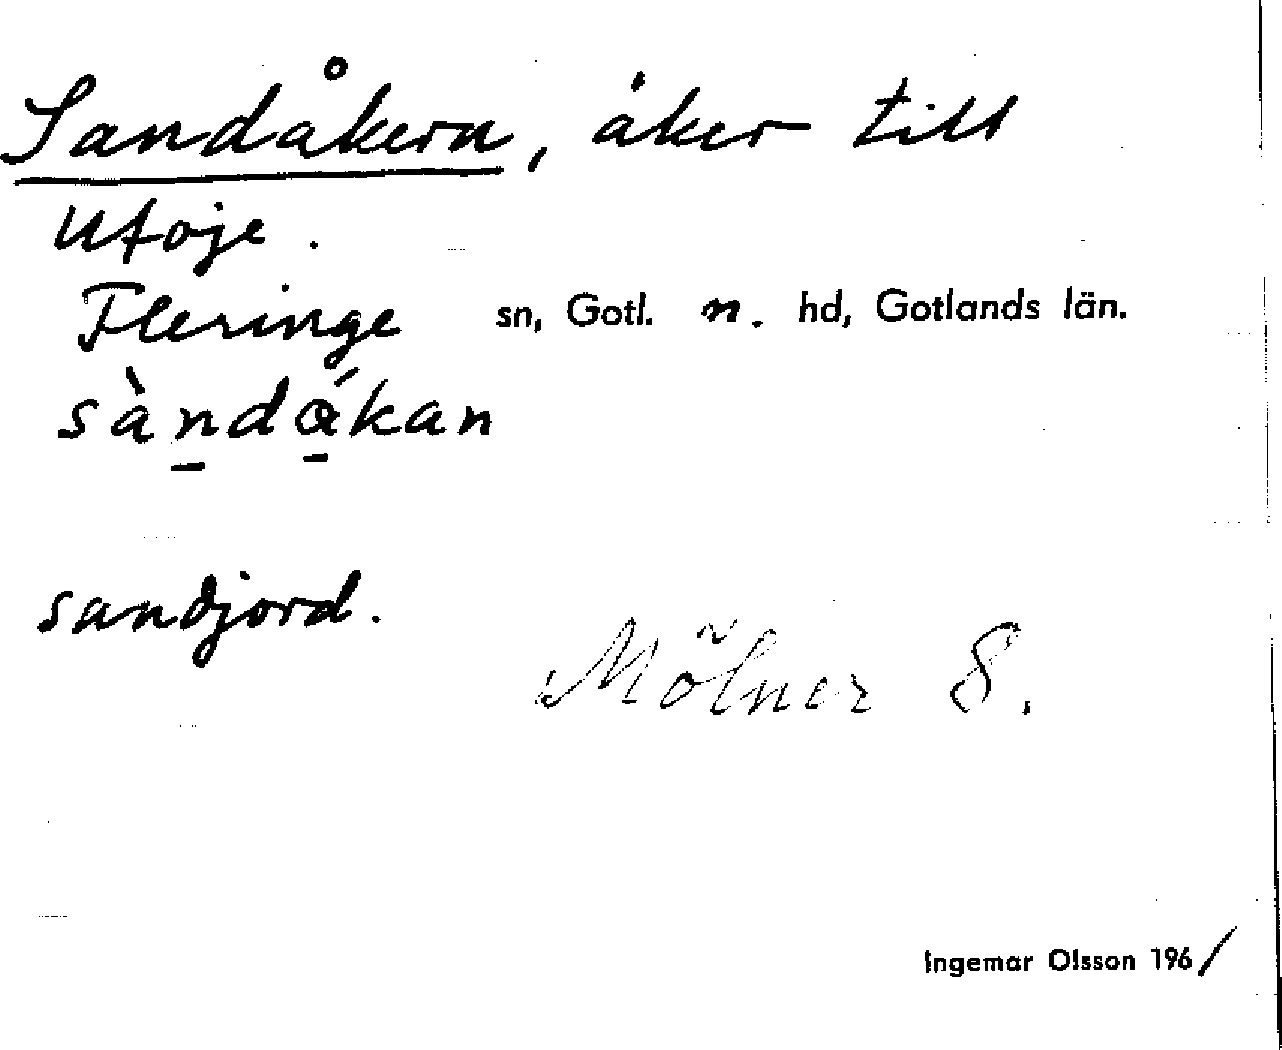 Sandåkern, åker till
Utoje.
Fleringe sn, Gotl. n. hd, Gotlands län.
sàn̠dά̠kan
sandjord.
Mölner S.
Ingemar Olsson 1961